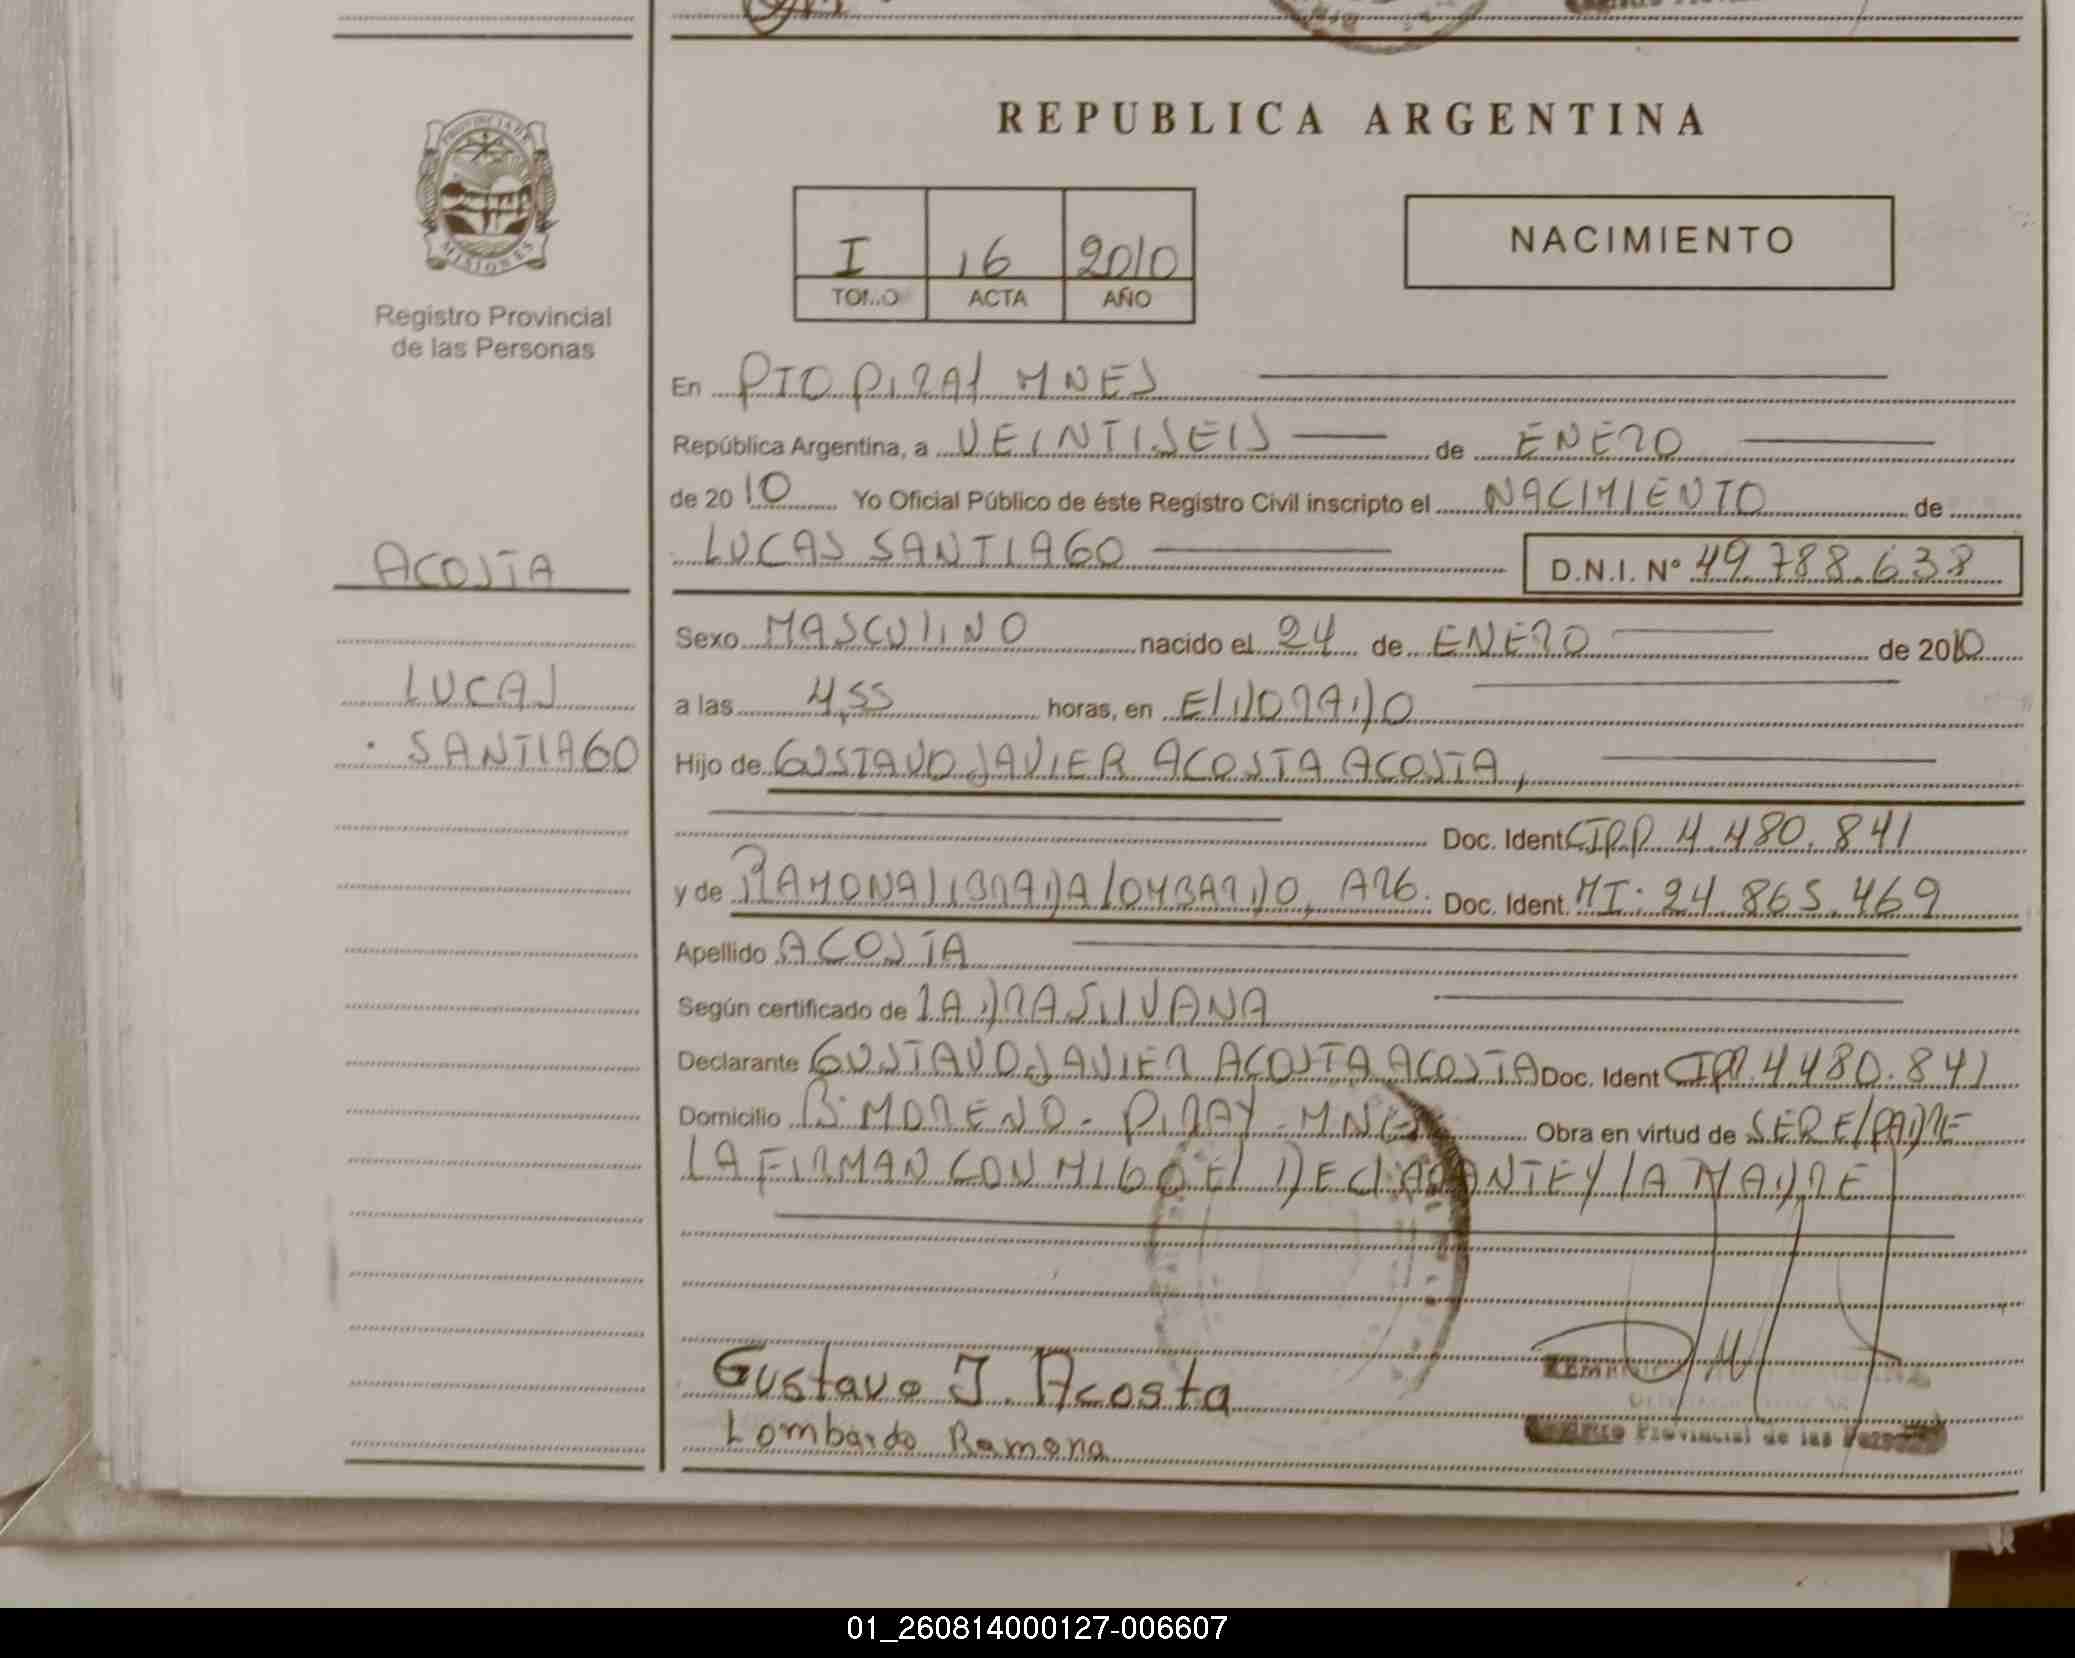 REPUBLICA ARGENTINA
PROVINCIA DE
MISIONES
Registro Provincial
de las Personas
I 16 2010
TOMO ACTA AÑO
NACIMIENTO
En PTO PIRAY MNES
República Argentina, a VEINTISEIS de ENERO
de 2010 Yo Oficial Público de éste Registro Civil inscripto el NACIMIENTO de
LUCAS SANTIAGO D.N.I. Nº 49.788.638
ACOSTA
LUCAS
SANTIAGO
Sexo MASCULINO nacido el 24 de ENERO de 2010
a las 4,55 horas, en ELDORADO
Hijo de GUSTAVO JAVIER ACOSTA ACOSTA,
Doc. Ident CIPP 4.480.841
y de RAMONA LIBRADA LOMBARDO, ARG. Doc. Ident. MI: 24.865.469
Apellido ACOSTA
Según certificado de LA DRA SILVANA
Declarante GUSTAVO JAVIER ACOSTA ACOSTA Doc. Ident CIPP. 4.480.841
Domicilio Bº MORENO - PIRAY - MNES Obra en virtud de SER EL PADRE
LA FIRMAN CONMIGO EL DECLARANTE Y LA MADRE
Gustavo J. Acosta
Lombardo Ramona
Registro Provincial de las Personas
01_260814000127-006607